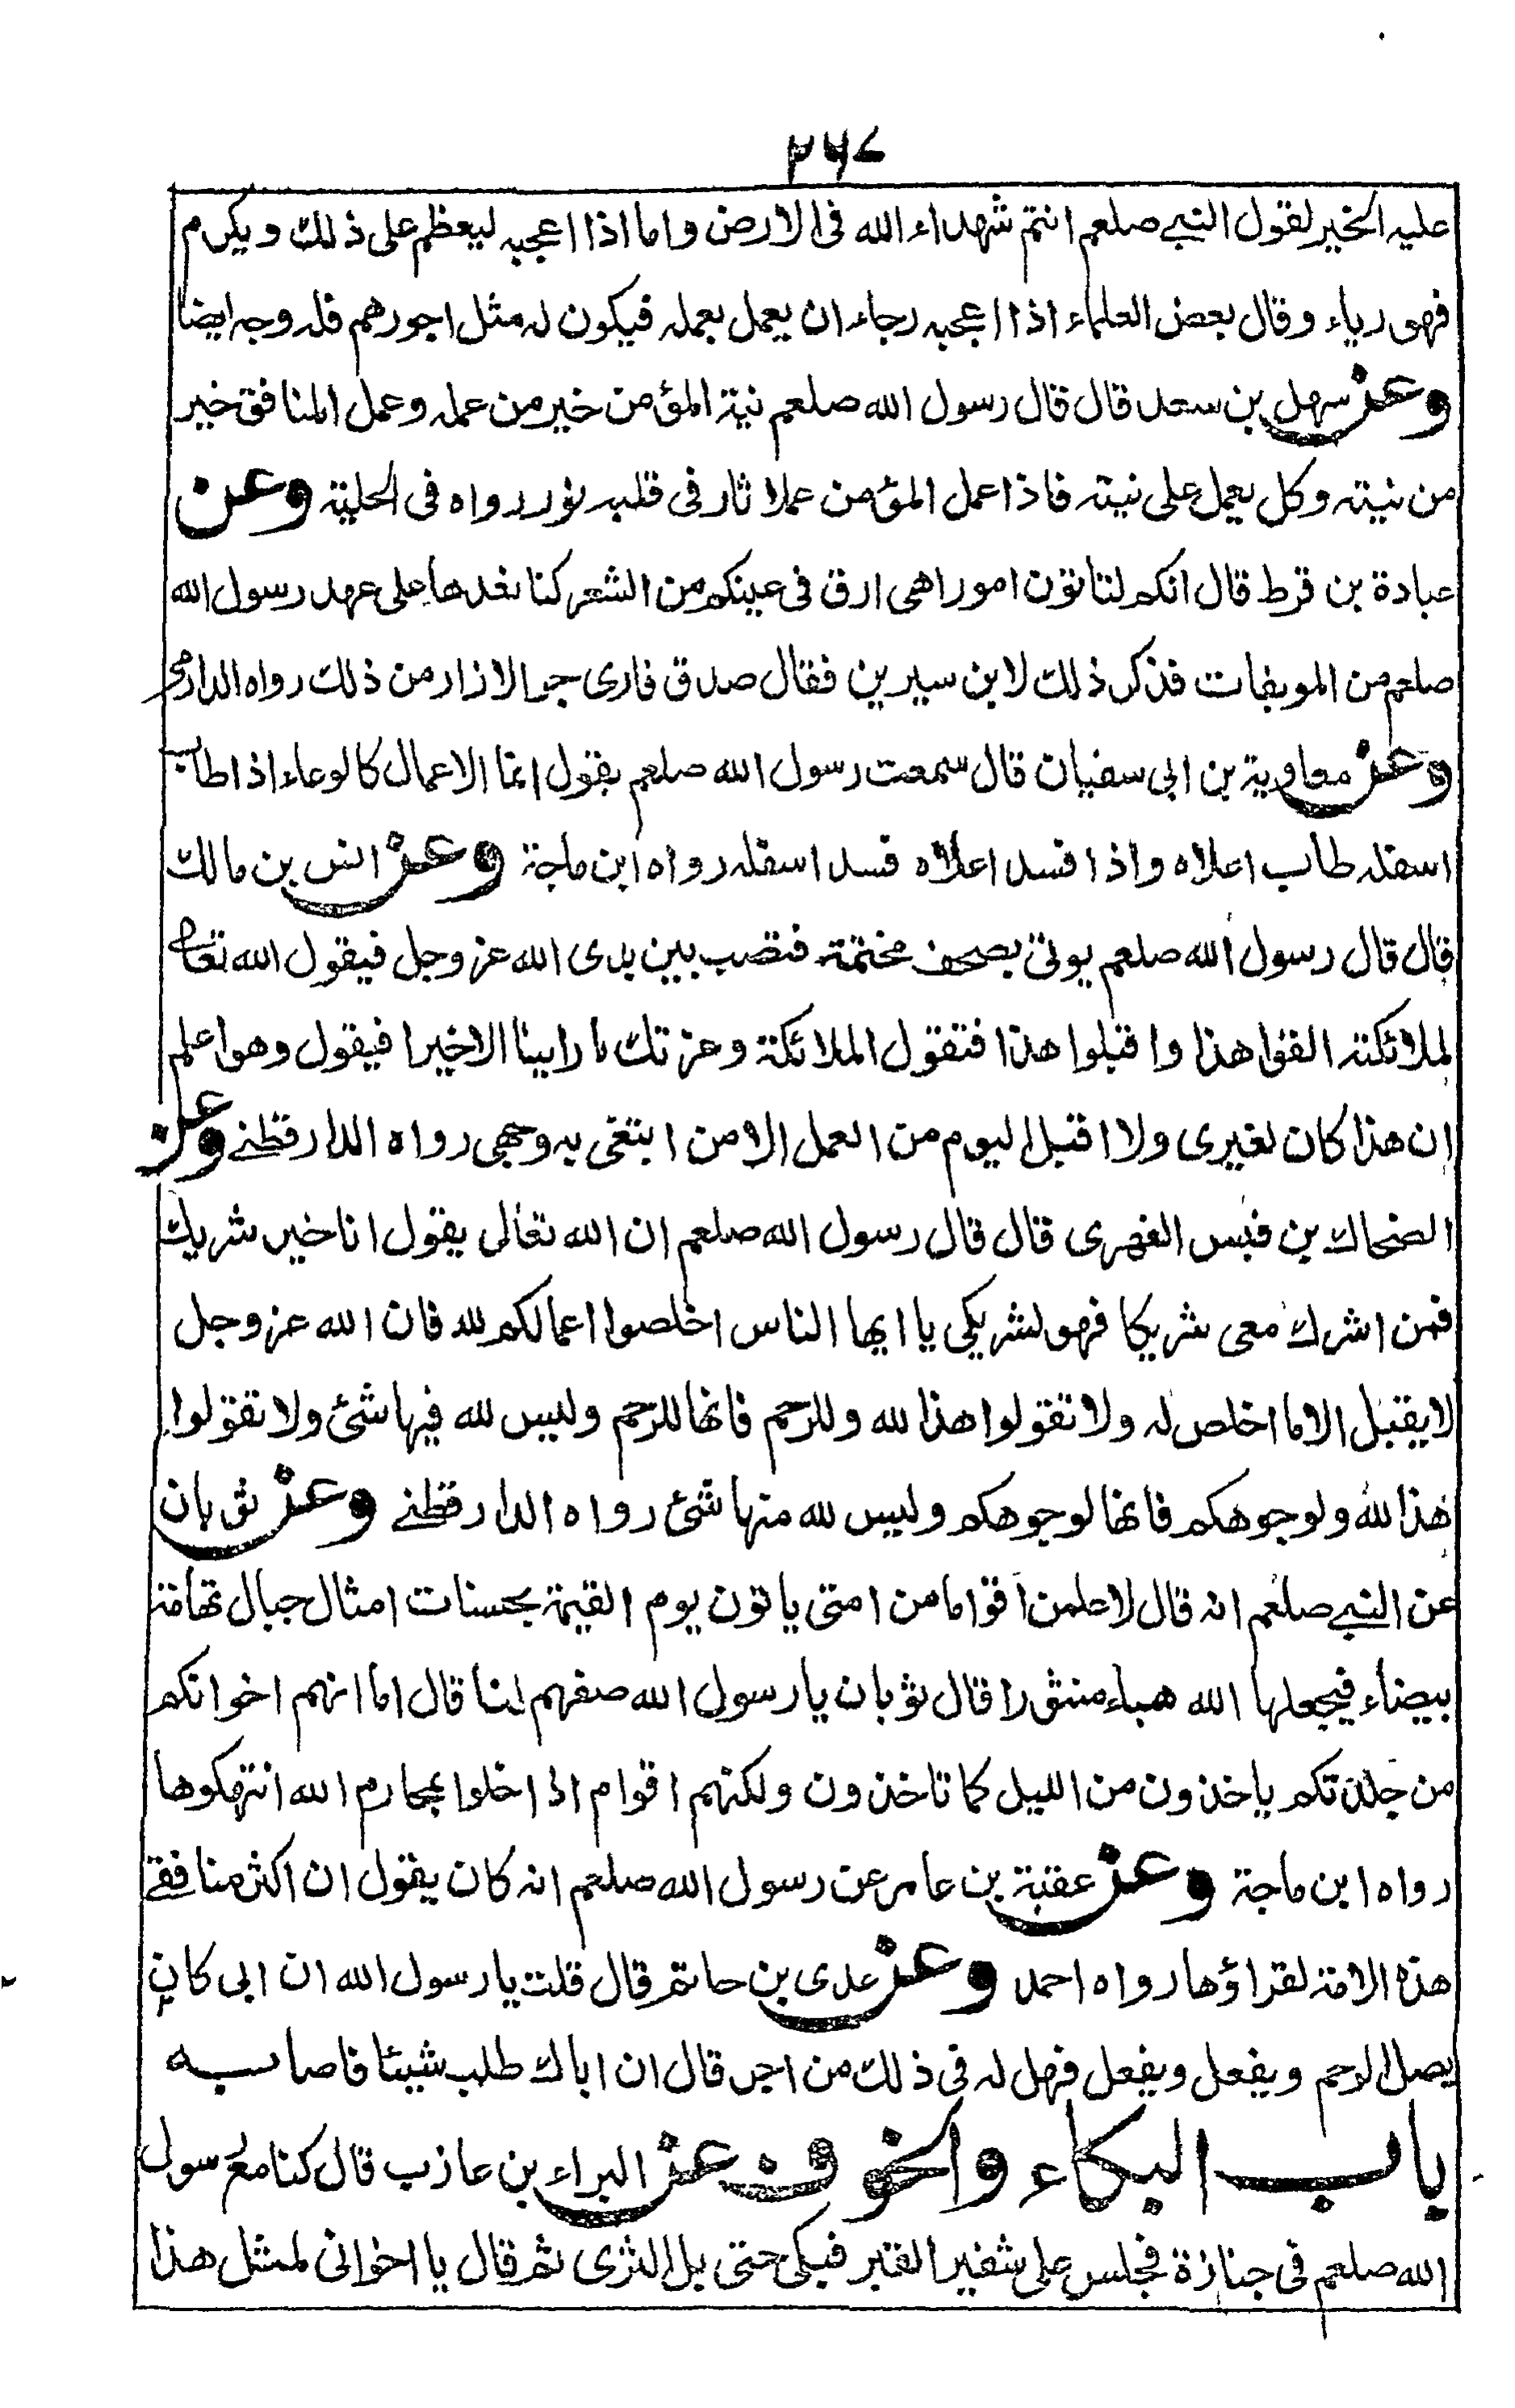 ۲۶۷
عليه الخير لقول النبي صلعم انتم شهداء الله فى الارض واما اذا اعجبه ليعظم على ذلك ويكرم
فهو رياء وقال بعض العلماء اذا اعجبه رجاء ان يعمل بعمله فيكون له مثل اجورهم فله وجه ايضا
وعن سهل بن سعد قال قال رسول الله صلعم نية المؤمن خير من عمله وعمل المنافق خير
من نيته وكل يعمل على نيته فاذا عمل المؤمن عملا ثار فى قلبه نور رواه فى الحلية وعن
عبادة بن قرط قال انكم لتاتون امورا هى ارق فى عينكم من الشعر كنا نعدها على عهد رسول الله
صلعم من الموبقات فذكر ذلك لابن سيرين فقال صدق فارى جر الازار من ذلك رواه الدارمى
وعن معاوية بن ابى سفيان قال سمعت رسول الله صلعم يقول انما الاعمال كالوعاء اذا طاب
اسفله طاب اعلاه واذا فسد اعلاه فسد اسفله رواه ابن ماجة وعن انس بن مالك
قال قال رسول الله صلعم يوتى بصحف مختمة فتصب بين يدى الله عز وجل فيقول الله تعالى
لملائكته القوا هذا واقبلوا هذا فتقول الملائكة وعزتك ما راينا الا خيرا فيقول وهو اعلم
ان هذا كان لغيرى ولا اقبل اليوم من العمل الا من ابتغى به وجهى رواه الدارقطنے وعن
الضحاك بن قيس الفهرى قال قال رسول الله صلعم ان الله تعالى يقول انا خير شريك
فمن اشرك معى شريكا فهو لشريكى يا ايها الناس اخلصوا اعمالكم لله فان الله عز وجل
لا يقبل الا ما اخلص له ولا تقولوا هذا لله وللرحم فانها للرحم وليس لله فيها شئ ولا تقولوا
هذا لله ولوجوهكم فانها لوجوهكم وليس لله منها شئ رواه الدارقطنے وعن ثوبان
عن النبے صلعم انه قال لاعلمن اقواما من امتى ياتون يوم القيمة بحسنات امثال جبال تهامة
بيضاء فيجعلها الله هباء منثورا قال ثوبان يا رسول الله صفهم لنا قال اما انهم اخوانكم
من جلدتكم ياخذون من الليل كما تاخذون ولكنهم اقوام اذا خلوا بمحارم الله انتهكوها
رواه ابن ماجة وعن عقبة بن عامر عن رسول الله صلعم انه كان يقول ان اكثر منافقے
هذه الامة لقراؤها رواه احمد وعن عدى بن حاتم قال قلت يا رسول الله ان ابى كان
يصل الرحم ويفعل ويفعل فهل له فى ذلك من اجر قال ان اباك طلب شيئا فاصابه
باب البكاء والخوف عن البراء بن عازب قال كنا مع رسول
الله صلعم فى جنازة فجلس على شفير القبر فبكى حتى بل الثرى ثم قال يا اخوانى لمثل هذا